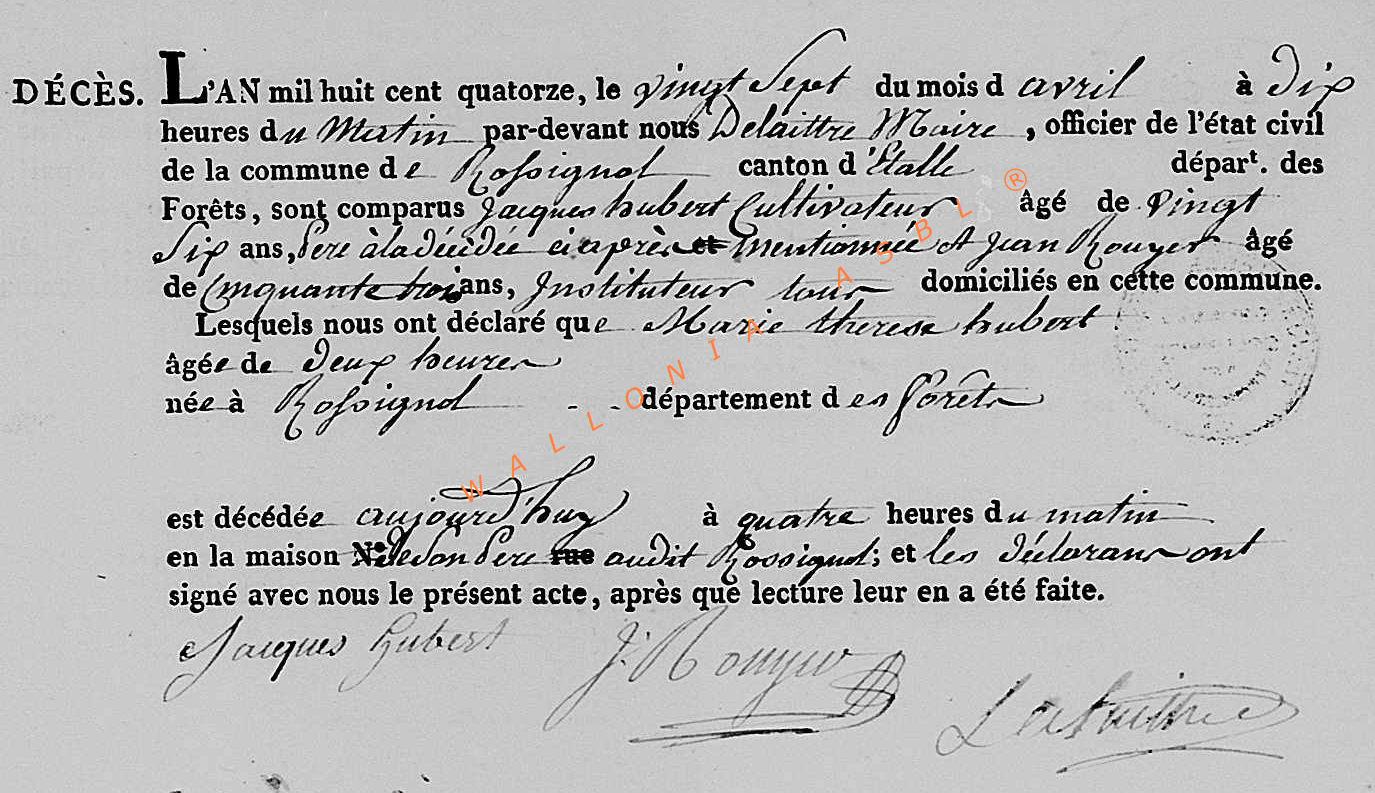 DÉCÈS. L'AN mil huit cent quatorze, le vingt Sept du mois d avril à Dix
heures du Matin par-devant nous Delaittre Maire, officier de l'état civil
de la commune de Rossignol canton d'Etalleépart. des
Forêts, sont comparus Jacques hubert Cultivateur âgé de vingt
Six ans, Pere à la décédée ci après et mentionnée et Jean Rouyer âgé
de Cinquante trois ans, Instituteur tous domiciliés en cette commune.
Lesquels nous ont déclaré que Marie therese hubert
âgée de Deux heures
née à Rossignol département des forêts
est décédée aujourd'huy à quatre heures du matin
en la maison N.° de son Pere rue audit Rossignol; et les déclarans ont
signé avec nous le présent acte, après que lecture leur en a été faite.
Jacques Hubert J. Rouyer Delaittre
WALLONIA ASBL ®